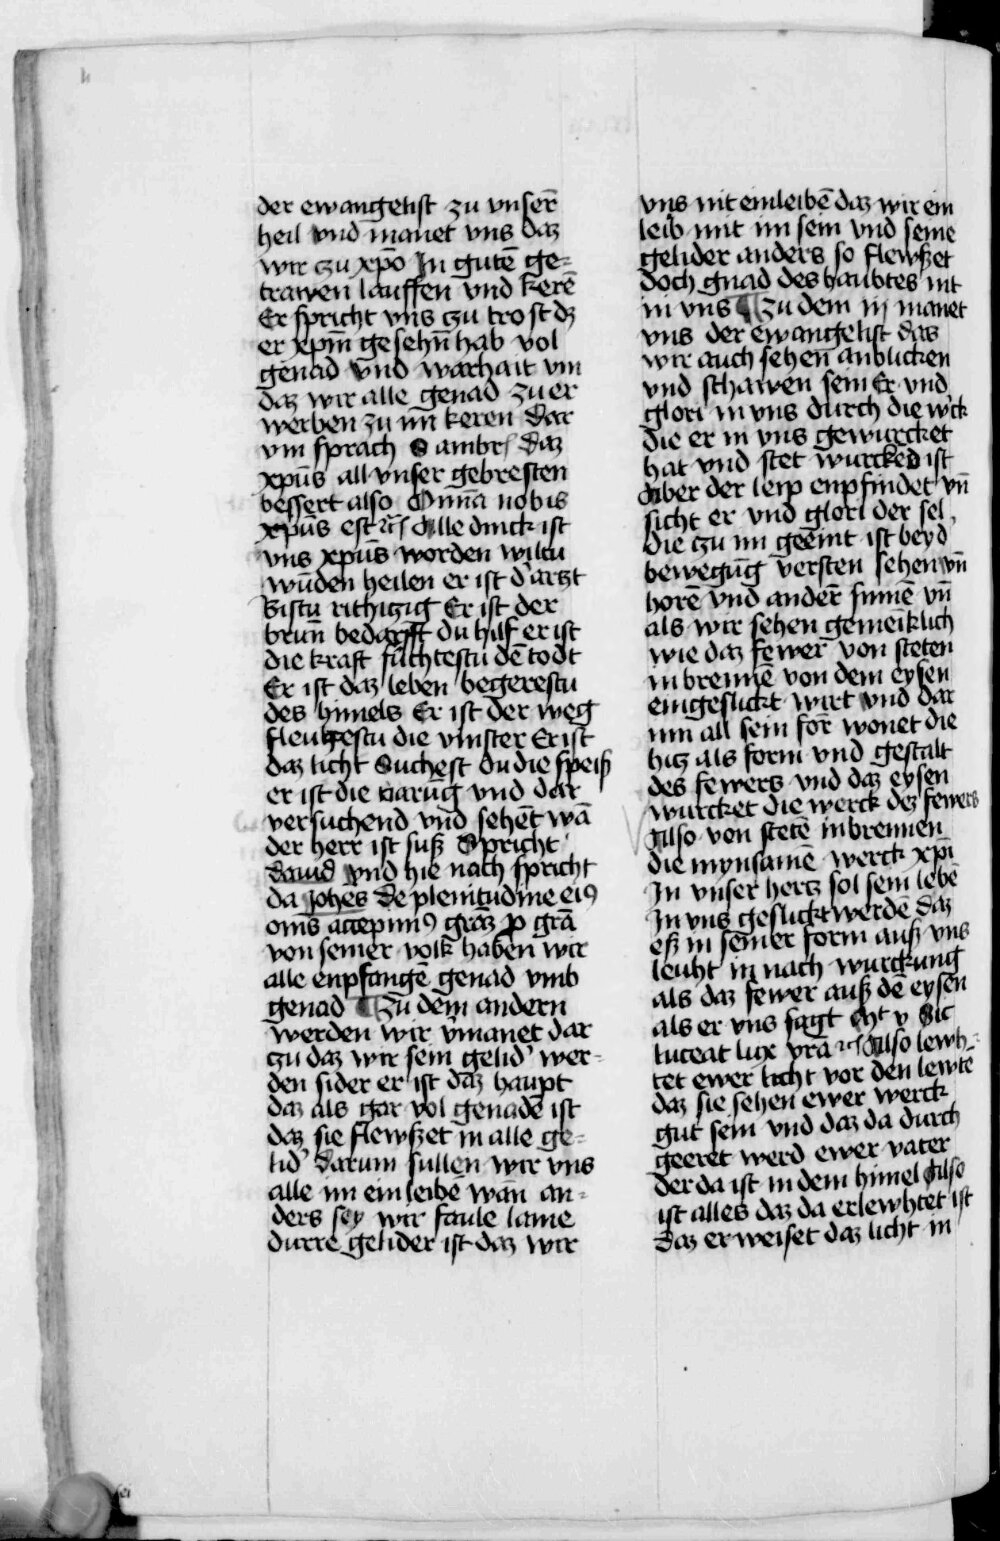 der ewangelist zu vnser̄
heil vnd manet vns daz
wir zu xp̄o In gutē ge=
trawen lauffen vnd kerē
Er spricht vns zu trost dz
er xpm̄ gesehn̄ hab vol
genad vnd warhait vm
daz wir alle genad zu er
werben zu im keren Dar
vm sprach S ambrꝭ daz
xpūs all vnser gebresten
bessert also Omnia nobis
xpūs est ⁊c̄ Alle dinck ist
vns xpūs worden wiltu
wūden heilen er ist d' artzt
Bistu rithitzig Er ist der
brun̄ bedarfft du hilf er ist
die kraft fuchtestu dē todt
Er ist daz leben begerestu
des himels Er ist der weg
fleuhestu die vinster Er ist
daz licht Suchest du die speiß
er ist die narūg vnd dar
versuchend vnd sehēt wā
der herr ist suß Spricht
dauid vnd hie nach spricht
da johēs De plenitudine eiꝰ
om̄s accepimꝰ grāz ꝓ grā
von seiner volk haben wir
alle enpfangē genad vmb
genad ¶ Zu dem andern
werden wir v̄manet dar
zu daz wir sein gelid' wer=
den sider er ist daz haupt
daz als gar vol genadē ist
daz sie flewßet in alle ge=
lid' darum sullen wir vns
alle im einleibē wān an=
ders sey wir faule lame
durre gelider ist daz wir
vns nit einleibē daz wir ein
leib mit im sein vnd seine
gelider anders so flewßet
doch gnad des haubtes nit
in vns ¶ Zu dem iij manet
vns der ewangelist das
wir auch sehen̄ anblicken
vnd schawen sein Er vnd
glori in vns durch die w'ck
die er in vns gewurcket
hat vnd stet wurcked ist
Aber der leip enpfindet vn̄
sicht er vnd glori der sel
die zu im geēint ist bey d
bewegūg versten sehen vn̄
horē vnd ander̄ sinnē vn̄
als wir sehen gemeīklich
wie daz fewer von steten
inbrennē von dem eysen
eingeslickt wirt vnd dar
inn all sein for̄ wonet die
hitz als form vnd gestalt
des fewers vnd daz eysen
wurcket die werck dez fewers
Also von stetē inbrennen
die mynsamē werck xp̄i
In vnser hertz sol sein lebē
In vns geslickt werdē daz
eß in seiner form auß vns
leuht in nach wurckung
als daz fewer auß dē eysen
als er vns sagt Mt v Sic
luceat lux vrā ⁊c̄ Also lewh=
tet ewer licht vor den lewtē
daz sie sehen ewer werck
gut sein vnd daz da durch
geeret werd ewer vater
der da ist in dem himel Also
ist alles daz da erlewhtet ist
daz er weiset daz licht in